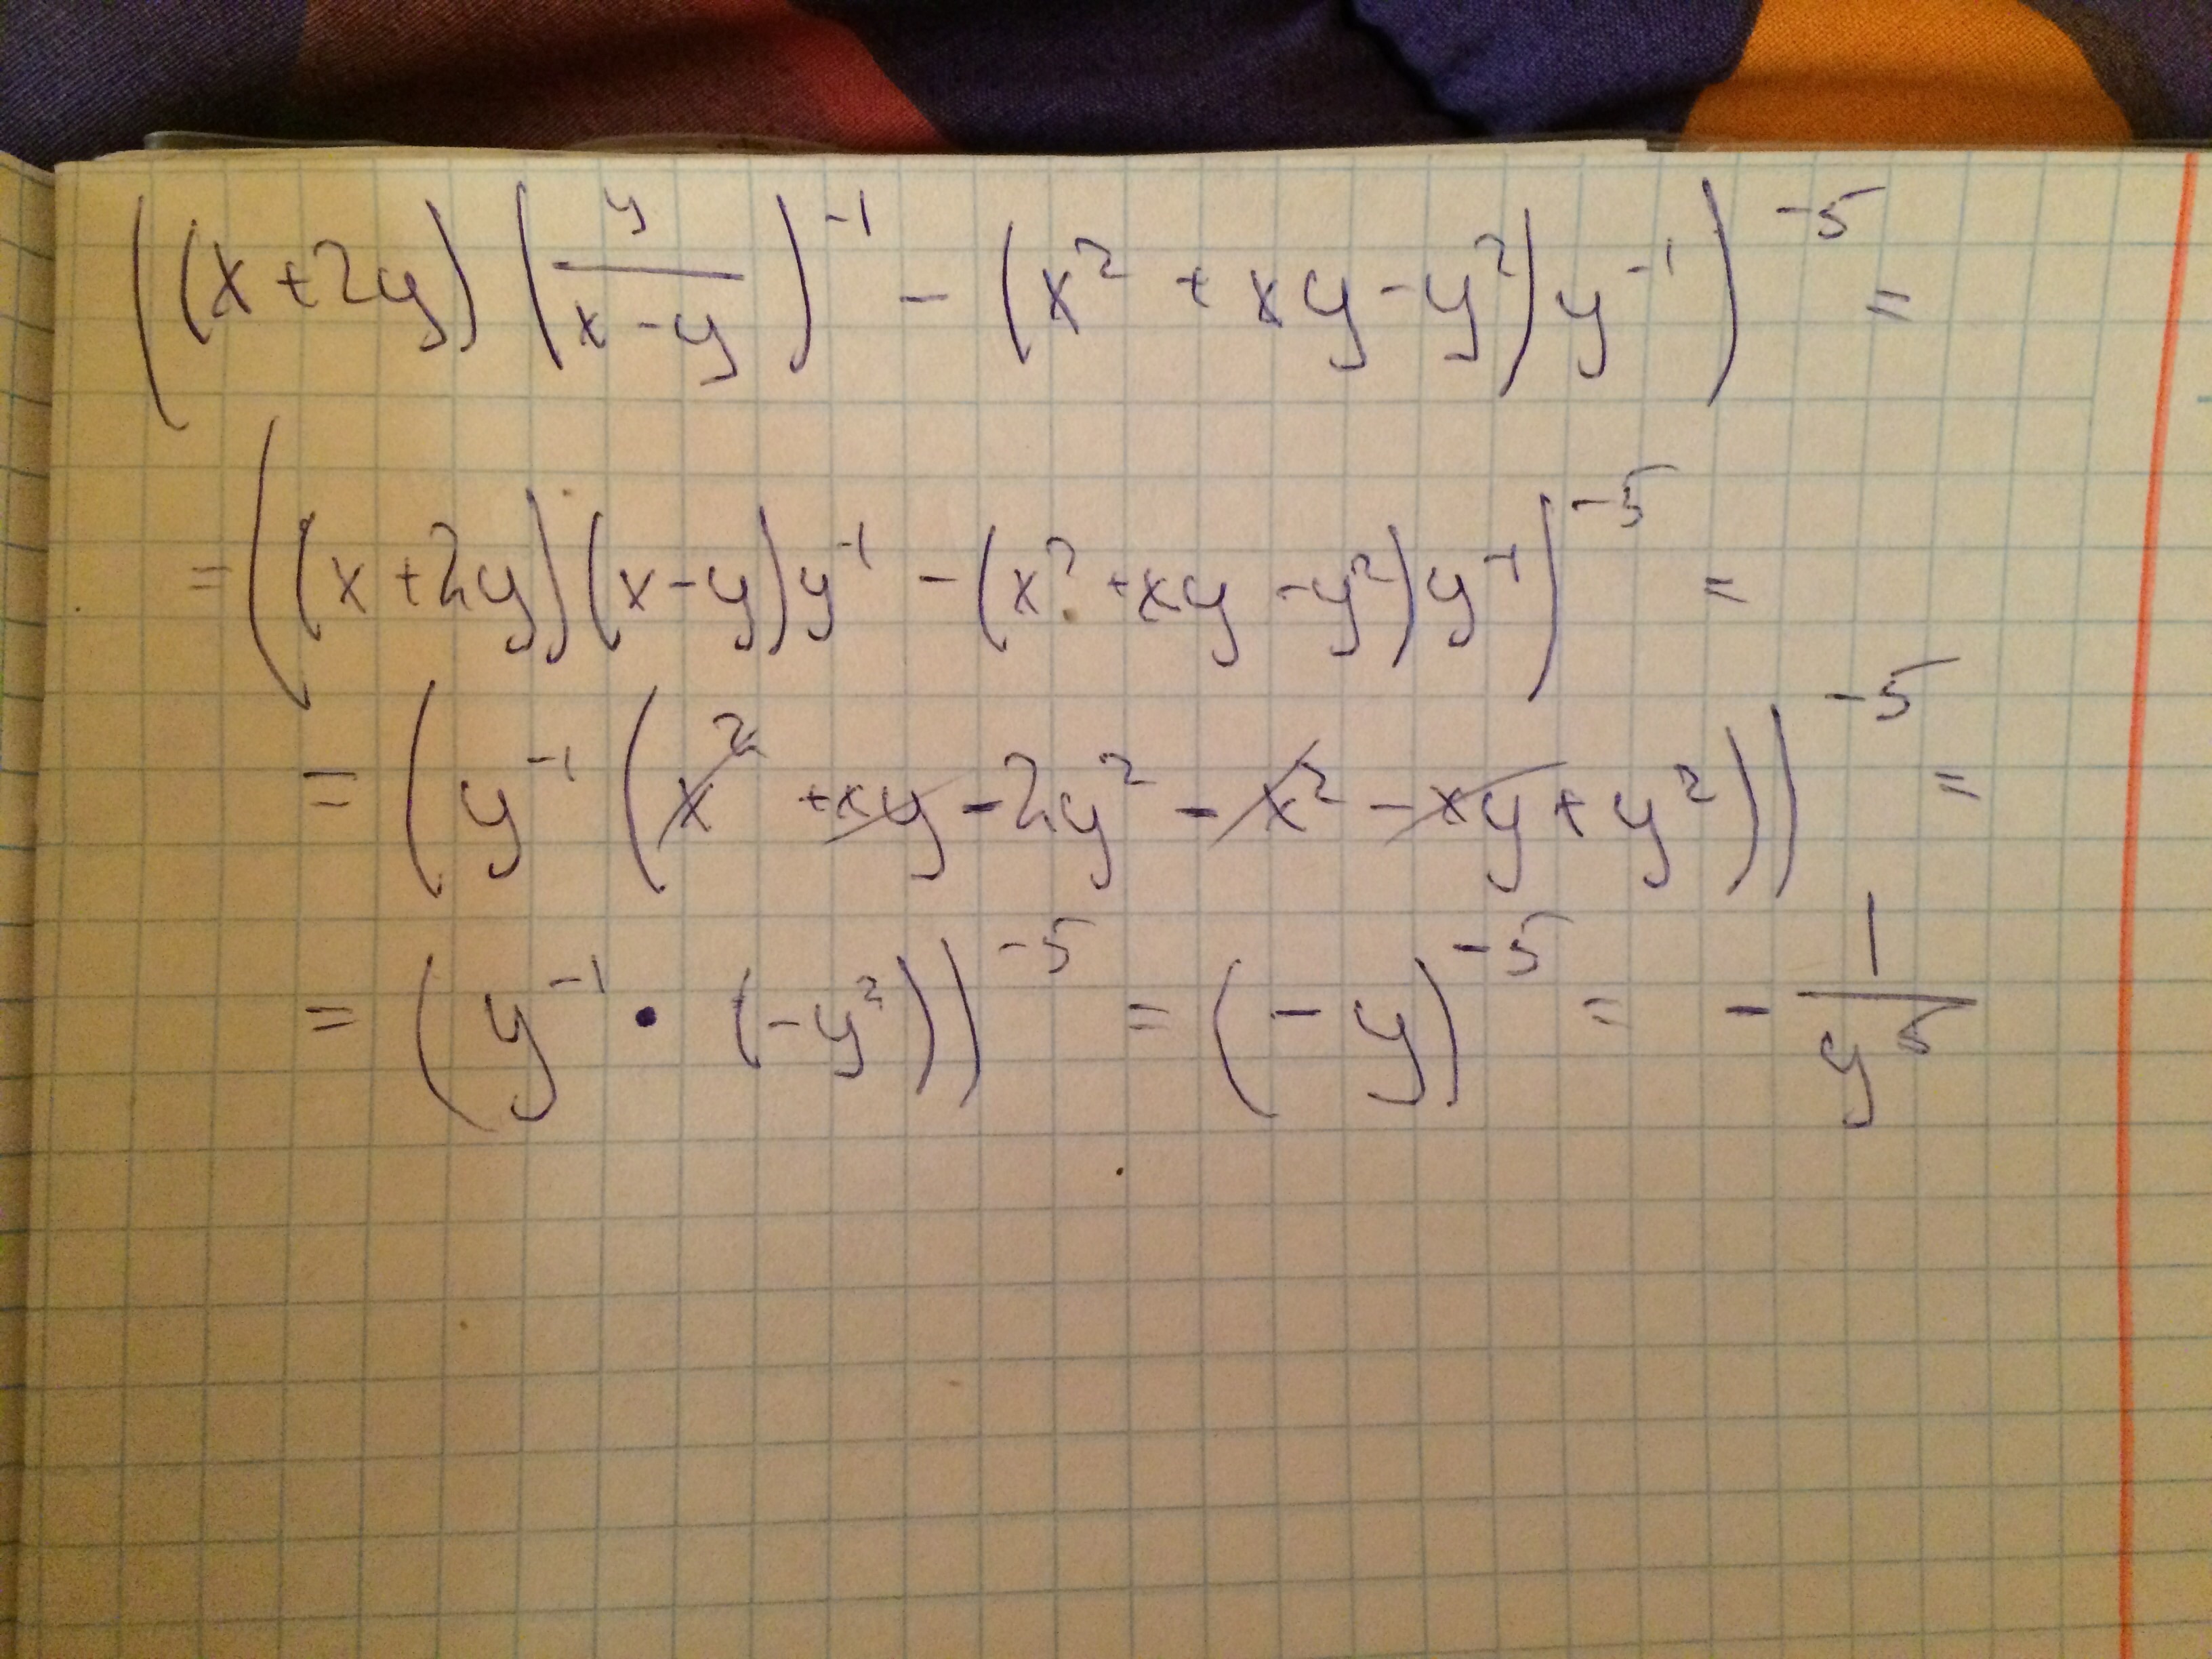 ((x+2y)(y/(x-y))^-1 - (x^2 + xy - y^2)y^-1)^-5 =
= ((x+2y)(x-y)y^-1 - (x^2 + xy - y^2)y^-1)^-5 =
= (y^-1 (x^2 + xy - 2y^2 - x^2 - xy + y^2))^-5 =
= (y^-1 • (-y^2))^-5 = (-y)^-5 = - 1/y^5